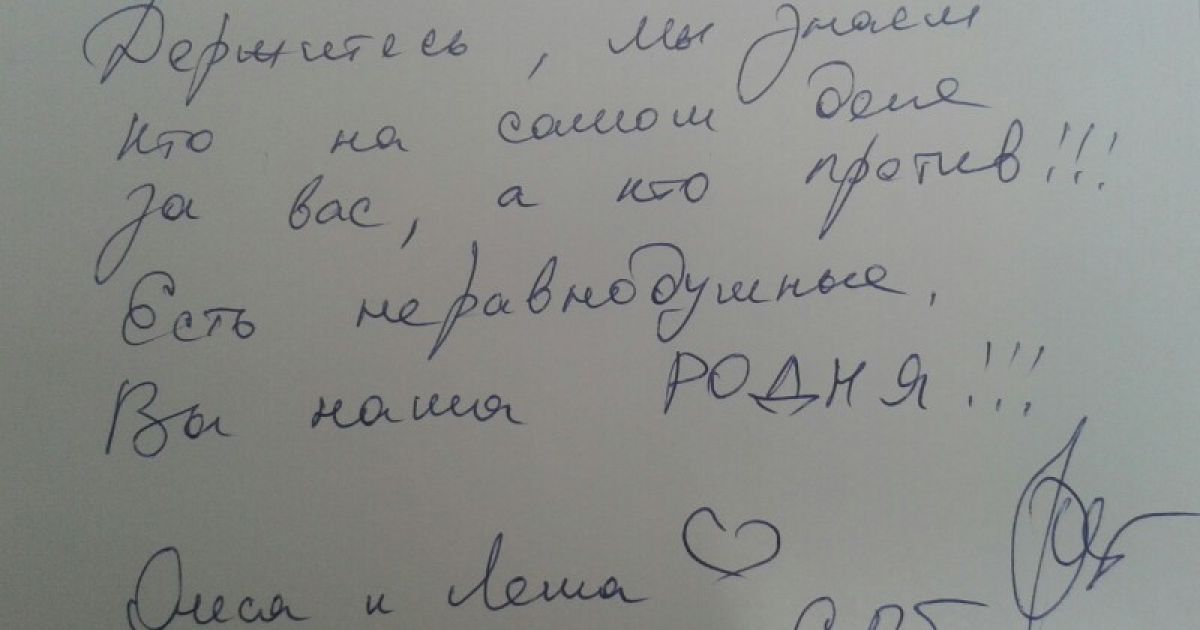 Держитесь, мы знаем
кто на самом деле
за вас, а кто против!!!
Есть неравнодушные,
Вы наша РОДНЯ!!!
Олеся и Леша